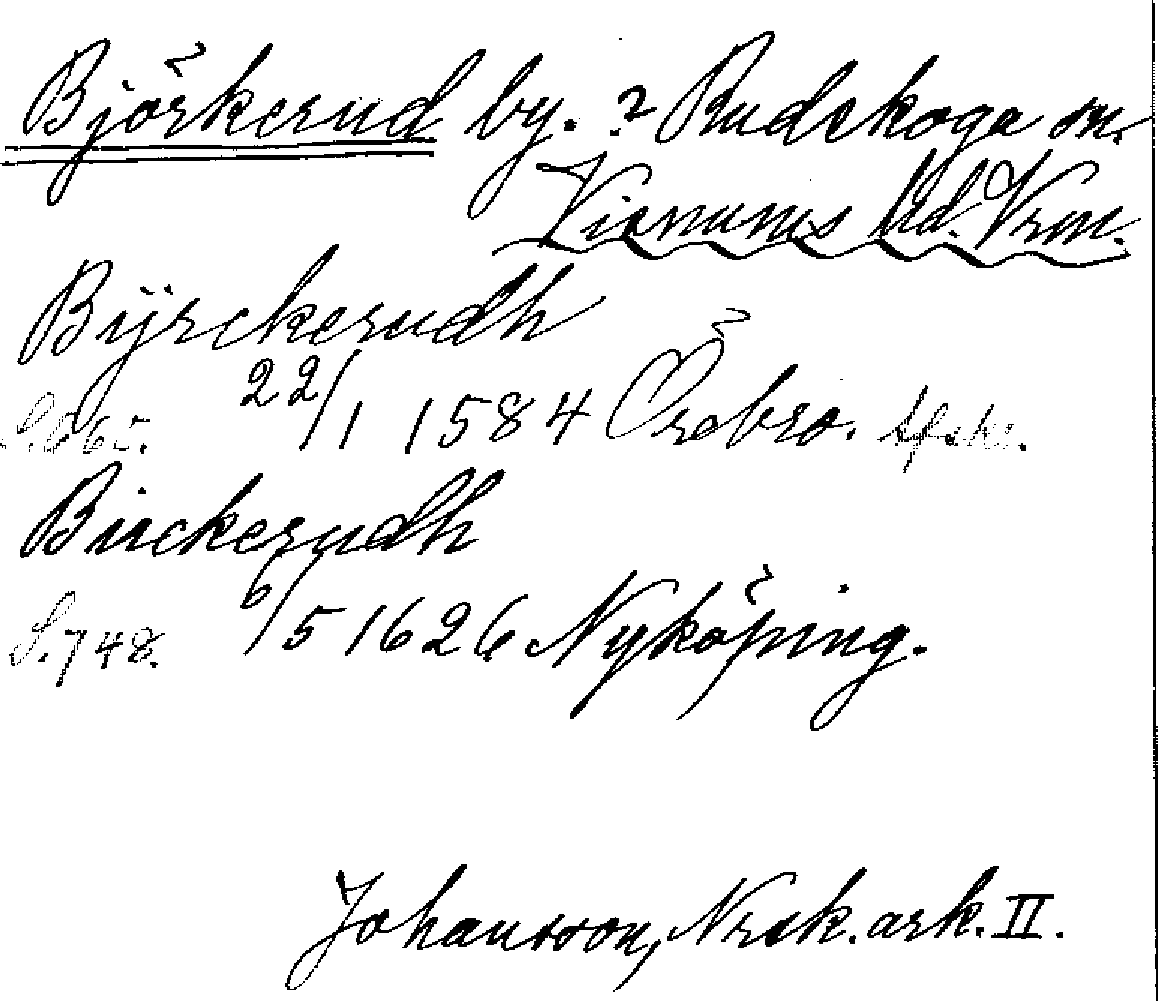 Björkerud by. ? Rudskoga sn.
Visnums hd. Vrm.
Bÿrckerudh
S. 665. 22/1 1584 Örebro. Afskr.
Birckerudh
S. 748. 6/5 1626 Nyköping.
Johansson, Nrsk. ark. II.